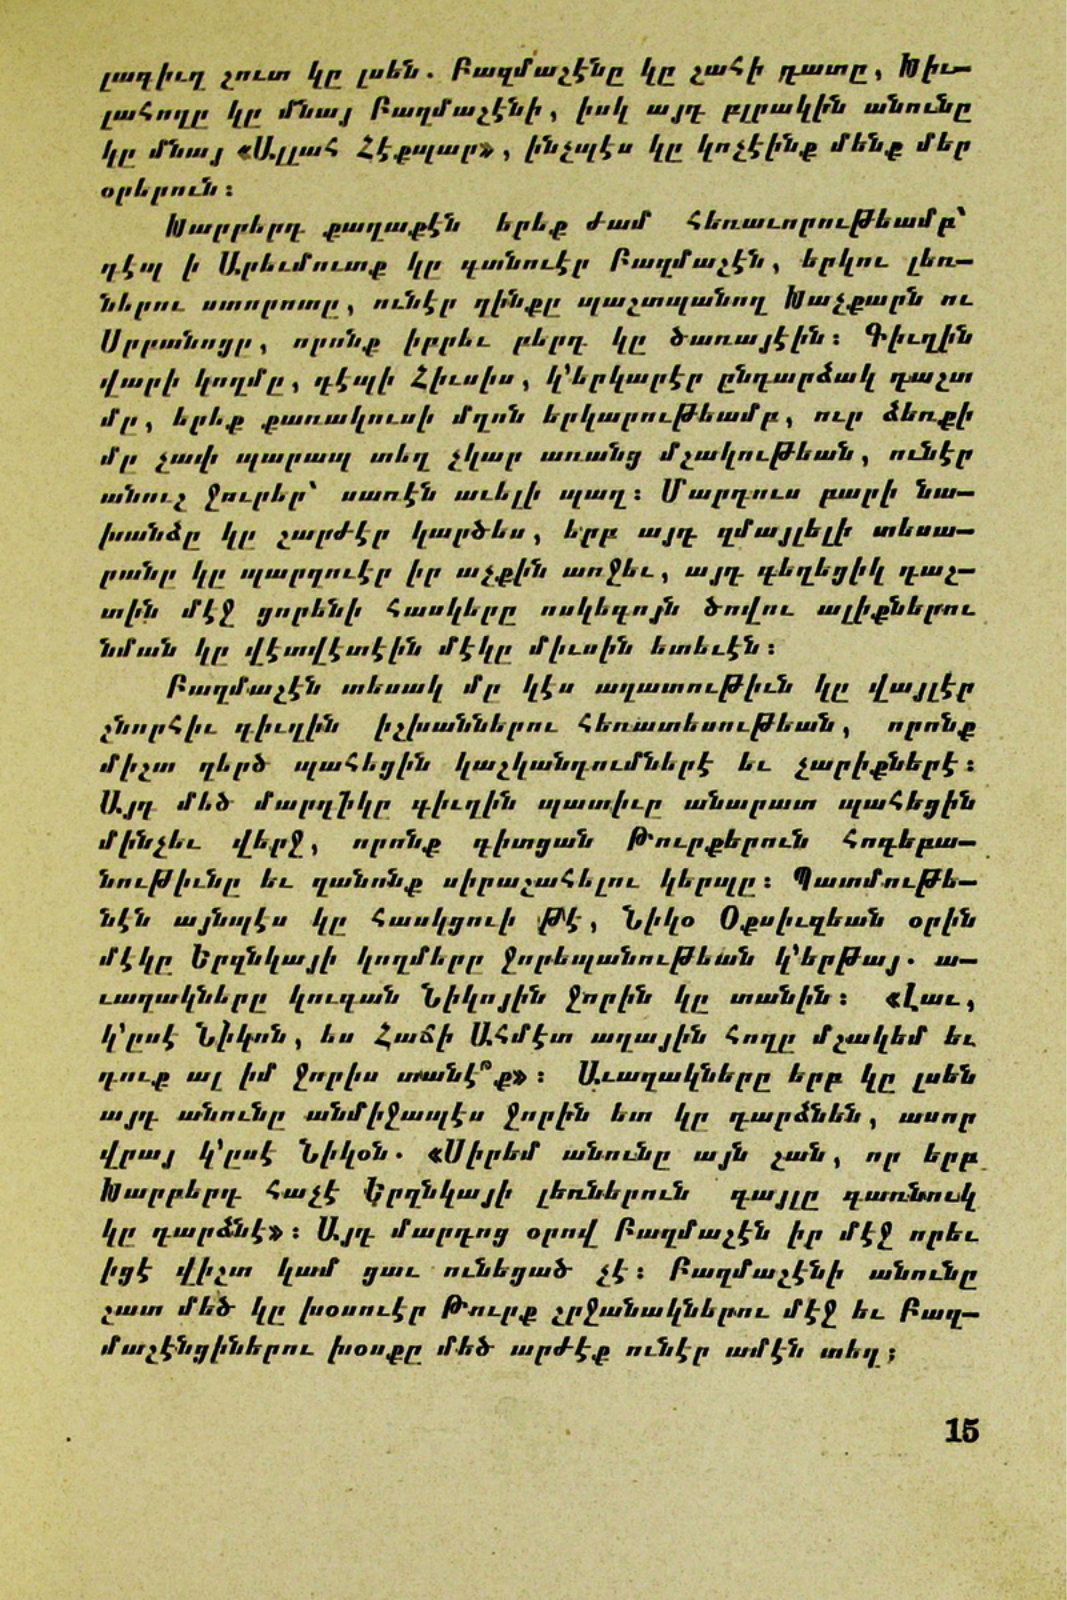 լագիւղ շուտ կը լսեն. Բազմաշէնը կը շահի դատը, Խիւ–
լահողը կը մնայ Բազմաշէնի, իսկ այդ բլրակին անունը
կը մնայ «Ալլահ Հէքպար», ինչպէս կը կոչէինք մենք մեր
օրերուն:
Խարբերդ քաղաքէն երեք ժամ հեռաւորութեամբ՝
դէպ ի Արեւմուտք կը գտնուէր Բազմաշէն, երկու լեռ–
ներու ստորոտը, ունէր զինքը պաշտպանող Խաչքարն ու
Սրբանոցը, որոնք իբրեւ բերդ կը ծառայէին: Գիւղին
վարի կողմը, դէպի Հիւսիս, կ՚երկարէր ընդարձակ դաշտ
մը, երեք քառակուսի մղոն երկարութեամբ, ուր ձեռքի
մը չափ պարապ տեղ չկար առանց մշակութեան, ունէր
անուշ ջուրեր՝ սառէն աւելի պաղ: Մարդուս բարի նա–
խանձը կը շարժէր կարծես, երբ այդ զմայլելի տեսա–
րանը կը պարզուէր իր աչքին առջեւ, այդ գեղեցիկ դաշ–
տին մէջ ցորենի հասկերը ոսկեգոյն ծովու ալիքներու
նման կը վէտվէտէին մէկը միւսին ետեւէն:
Բազմաշէն տեսակ մը կէս ազատութիւն կը վայլէր
շնորհիւ գիւղին իշխաններու հեռատեսութեան, որոնք
միշտ զերծ պահեցին կաշկանդումներէ եւ չարիքներէ:
Այդ մեծ մարդիկը գիւղին պատիւը անարատ պահեցին
մինչեւ վերջ, որոնք գիտցան Թուրքերուն հոգեբա–
նութիւնը եւ զանոնք սիրաշահելու կերպը: Պատմութե–
նէն այնպէս կը հասկցուի թէ, Նիկօ Օքսիւզեան օրին
մէկը Երզնկայի կողմերը ջորեպանութեան կ՚երթայ. ա–
ւազակները կուգան Նիկոյին ջորին կը տանին: «Լաւ,
կ՚ըսէ Նիկոն, ես Հաճի Ահմէտ աղային հողը մշակեմ եւ
դուք ալ իմ ջորիս տանէ՞ք»: Աւազակները երբ կը լսեն
այդ անունը անմիջապէս ջորին ետ կը դարձնեն, ասոր
վրայ կ՚ըսէ Նիկօն. «Սիրեմ անունը այն շան, որ երբ
Խարբերդ հաչէ Երզնկայի լեռներուն գայլը գառնուկ
կը դարձնէ»: Այդ մարդոց օրով Բազմաշէն իր մէջ որեւ
իցէ վիշտ կամ ցաւ ունեցած չէ: Բազմաշէնի անունը
շատ մեծ կը խօսուէր Թուրք շրջանակներու մէջ եւ Բազ–
մաշէնցիներու խօսքը մեծ արժէք ունէր ամէն տեղ;
15